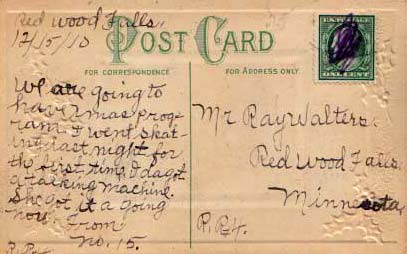 Red wood Falls,
12/15/10
POST CARD
FOR CORRESPONDENCE
FOR ADDRESS ONLY
ONE CENT
We are going to
have xmas prog-
ram. I went skat-
ing last night for
the first time. Ida got
a talking machine.
She got it a going
now. From
no. 15.
R.R.4.
Mr Ray Walters.
Red Wood Falls.
Minnesota
R.R.4.